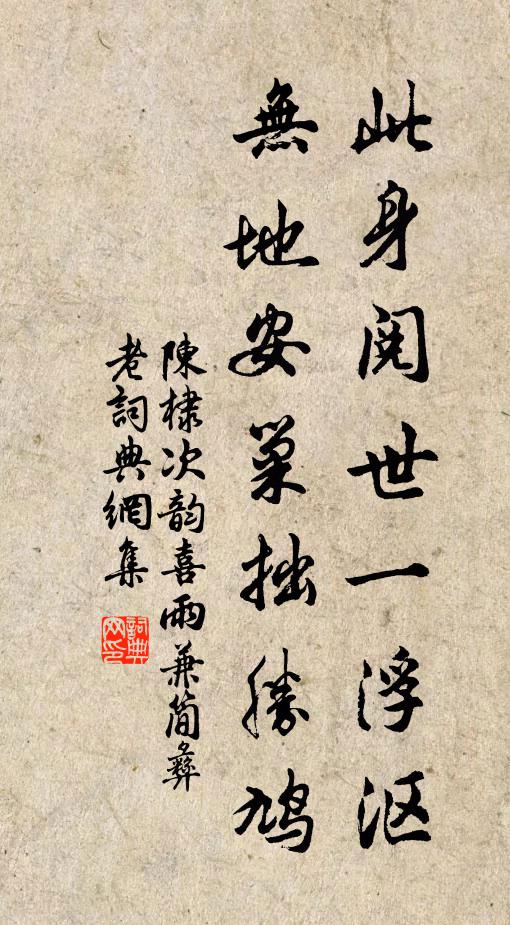 此身閱世一浮漚
無地安巢拙勝鳩
陳棣次韵喜雨兼簡彝
老詞典網集
詞典
网印